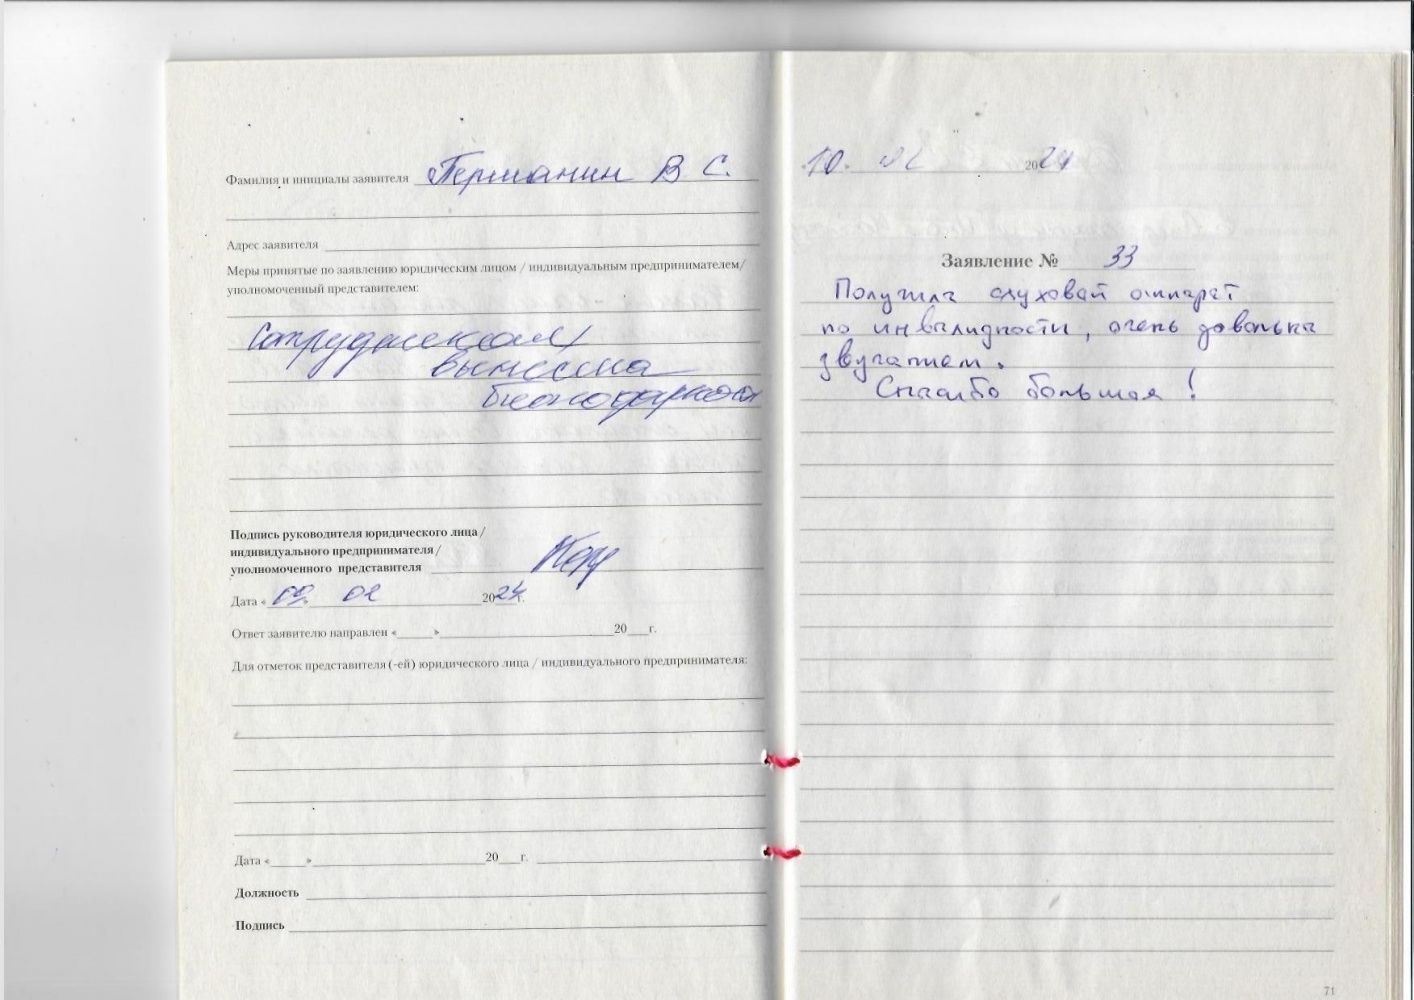 Фамилия и инициалы заявителя Германин В С.
Адрес заявителя
Меры принятые по заявлению юридическим лицом / индивидуальным предпринимателем/
уполномоченный представителем:
Сотрудникам
вынесена
благодарность
Подпись руководителя юридического лица /
индивидуального предпринимателя /
уполномоченного представителя
Дата « 09. 02 2024г.
Ответ заявителю направлен «___»___20___г.
Для отметок представителя (-ей) юридического лица / индивидуального предпринимателя:
Дата «___»___20___г.
Должность
Подпись
10. 02 2024
Заявление № 33
Получила слуховой аппарат
по инвалидности, очень довольна
звучанием.
Спасибо большое !
71